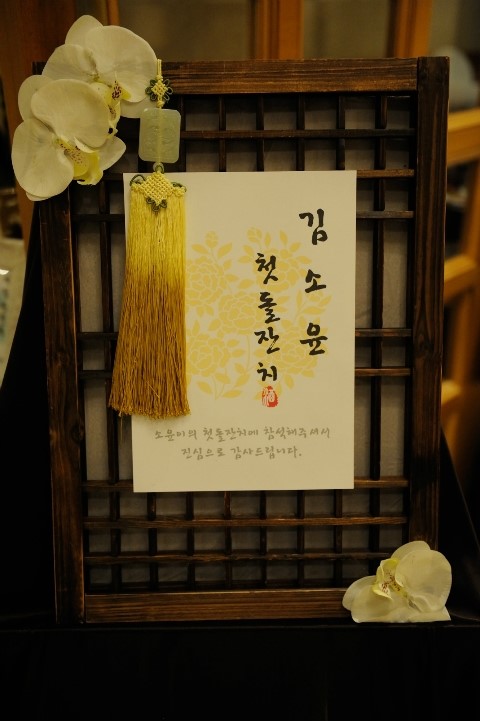 김소윤
첫돌잔치
소윤이의 첫돌잔치에 참석해주셔서
진심으로 감사드립니다.